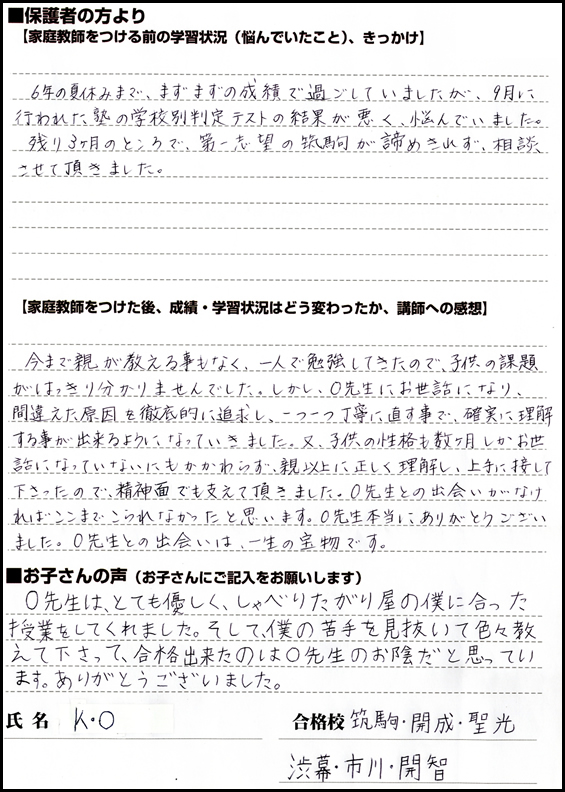 ■保護者の方より
【家庭教師をつける前の学習状況（悩んでいたこと）、きっかけ】
6年の夏休みまで、まずまずの成績で過ごしていましたが、9月に
行われた塾の学校別判定テストの結果が悪く、悩んでいました。
残り3ヶ月のところで、第一志望の筑駒が諦めきれず、相談
させて頂きました。
【家庭教師をつけた後、成績・学習状況はどう変わったか、講師への感想】
今まで親が教える事もなく、一人で勉強してきたので、子供の課題
がはっきり分かりませんでした。しかし、O先生にお世話になり、
間違えた原因を徹底的に追求し、一つ一つ丁寧に直す事で、確実に理解
する事が出来るようになっていきました。又、子供の性格も数ヶ月しかお世
話になっていないにもかかわらず、親以上に正しく理解し、上手に接して
下さったので、精神面でも支えて頂きました。O先生との出会いがなけ
ればここまでこられなかったと思います。O先生本当にありがとうござい
ました。O先生との出会いは、一生の宝物です。
■お子さんの声（お子さんにご記入をお願いします）
O先生は、とても優しく、しゃべりたがり屋の僕に合った
授業をしてくれました。そして、僕の苦手を見抜いて色々教
えて下さって、合格出来たのはO先生のお陰だと思ってい
ます。ありがとうございました。
氏名 K・O 合格校 筑駒・開成・聖光
渋幕・市川・開智